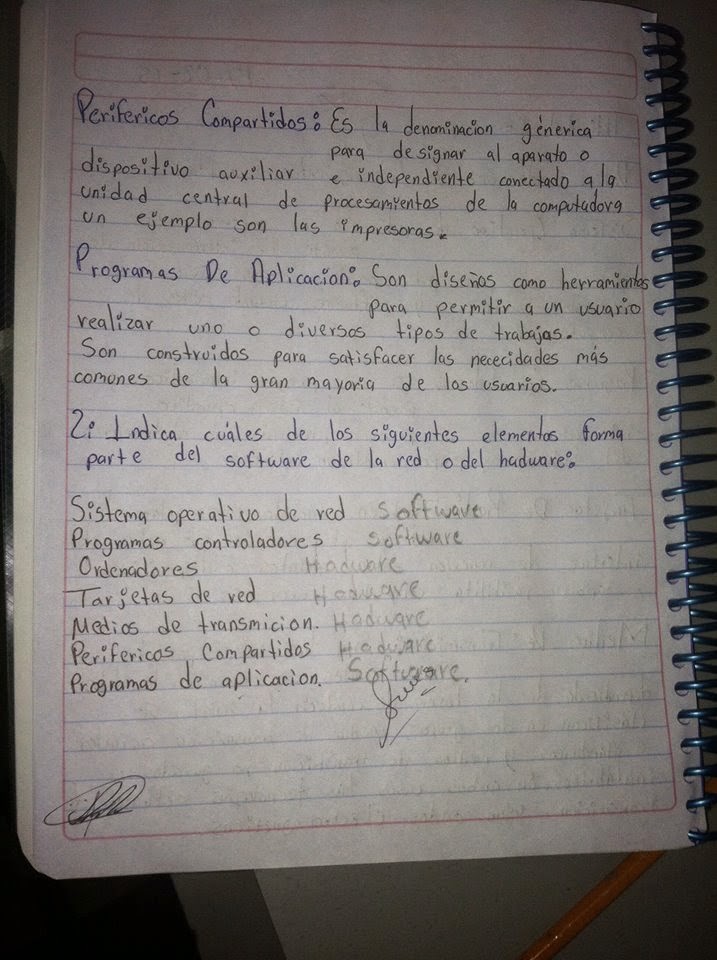 Perifericos Compartidos: Es la denominacion génerica
para designar al aparato o
dispositivo auxiliar e independiente conectado a la
unidad central de procesamientos de la computadora
un ejemplo son las impresoras.
Programas De Aplicacion: Son diseños como herramientos
para permitir a un usuario
realizar uno o diversos tipos de trabajas.
Son construidos para satisfacer las nececidades más
comunes de la gran mayoria de los usuarios.
2: Indica cuáles de los siguientes elementos forma
parte del software de la red o del hadware:
Sistema operativo de red Software
Programas controladores Software
Ordenadores Hadware
Tarjetas de red Hadware
Medios de transmicion. Hadware
Perifericos Compartidos Hadware
Programas de aplicacion. Software.